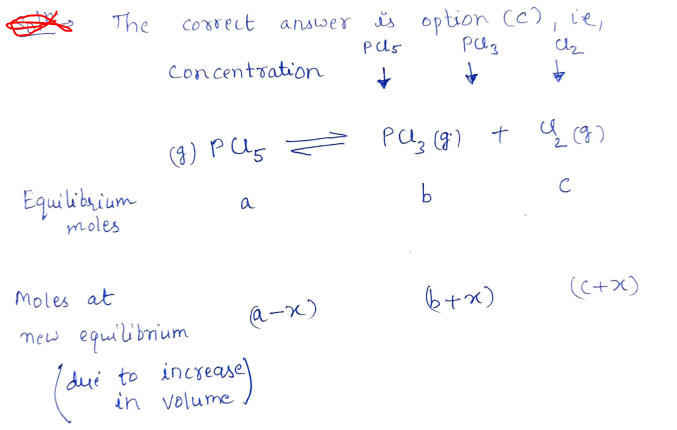 The correct answer is option (c), ie,
PCl5 PCl3 Cl2
Concentration ↓ ↓ ↓
(g) PCl5 ⇌ PCl3 (g) + Cl2 (g)
Equilibrium a b c
moles
Moles at
new equilibrium (a-x) (b+x) (c+x)
(due to increase
in volume)